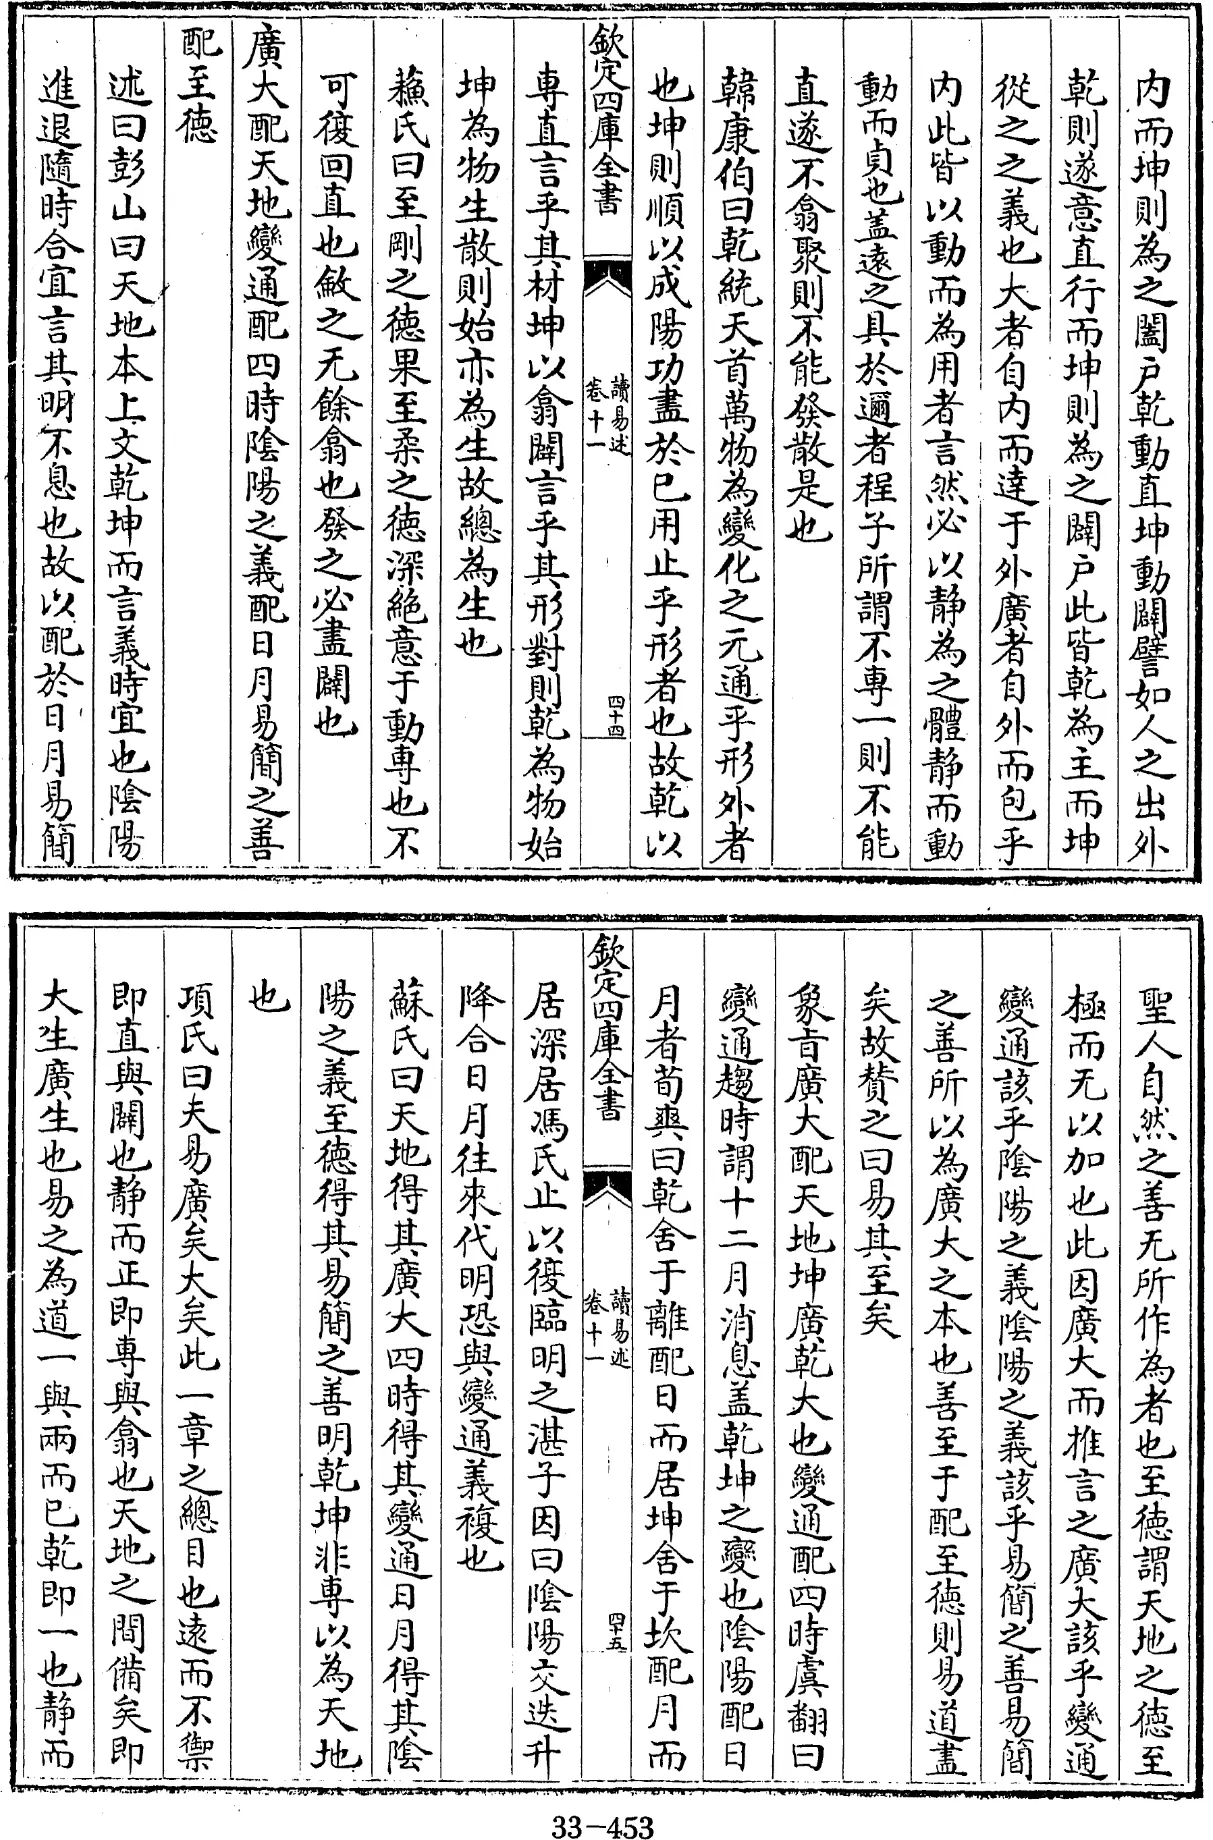 內而坤則為之闔户乾動直坤動闢譬如人之出外
乾則遂意直行而坤則為之闢户此皆乾為主而坤
從之之義也大者自内而達于外廣者自外而包乎
内此皆以動而為用者言然必以静為之體静而動
動而貞也盖逺之具於邇者程子所謂不専一則不能
直遂不翕聚則不能發散是也
韓康伯曰乾統天首萬物為變化之元通乎形外者
也坤則順以成陽功盡於已用止乎形者也故乾以
欽定四庫全書
讀易述
卷十一
四十四
専直言乎其材坤以翕闢言乎其形對則乾為物始
坤為物生散則始亦為生故總為生也
蘓氏曰至剛之徳果至柔之徳深絶意于動専也不
可復回直也斂之无餘翕也發之必盡闢也
廣大配天地變通配四時隂陽之義配日月易簡之善
配至徳
述曰彭山曰天地本上文乾坤而言義時宜也隂陽
進退隨時合宜言其明不息也故以配於日月易簡
聖人自然之善无所作為者也至徳謂天地之徳至
極而无以加也此因廣大而推言之廣大該乎變通
變通該乎隂陽之義隂陽之義該乎易簡之善易簡
之善所以為廣大之本也善至于配至徳則易道盡
矣故賛之曰易其至矣
象旨廣大配天地坤廣乾大也變通配四時虞翻曰
變通趨時謂十二月消息盖乾坤之變也隂陽配日
月者荀爽曰乾舍于離配日而居坤舍于坎配月而
欽定四庫全書
讀易述
卷十一
四十五
居深居馮氏止以復臨明之湛子因曰隂陽交迭升
降合日月往來代明恐與變通義複也
蘇氏曰天地得其廣大四時得其變通日月得其隂
陽之義至徳得其易簡之善明乾坤非専以為天地
也
項氏曰夫易廣矣大矣此一章之總目也逺而不禦
即直與闢也静而正即専與翕也天地之間備矣即
大生廣生也易之為道一與兩而已乾即一也静而
33-453